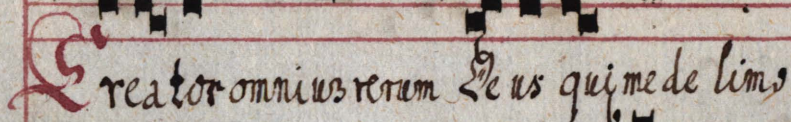 Creator omniuʒ rerum Deus qui me de limo